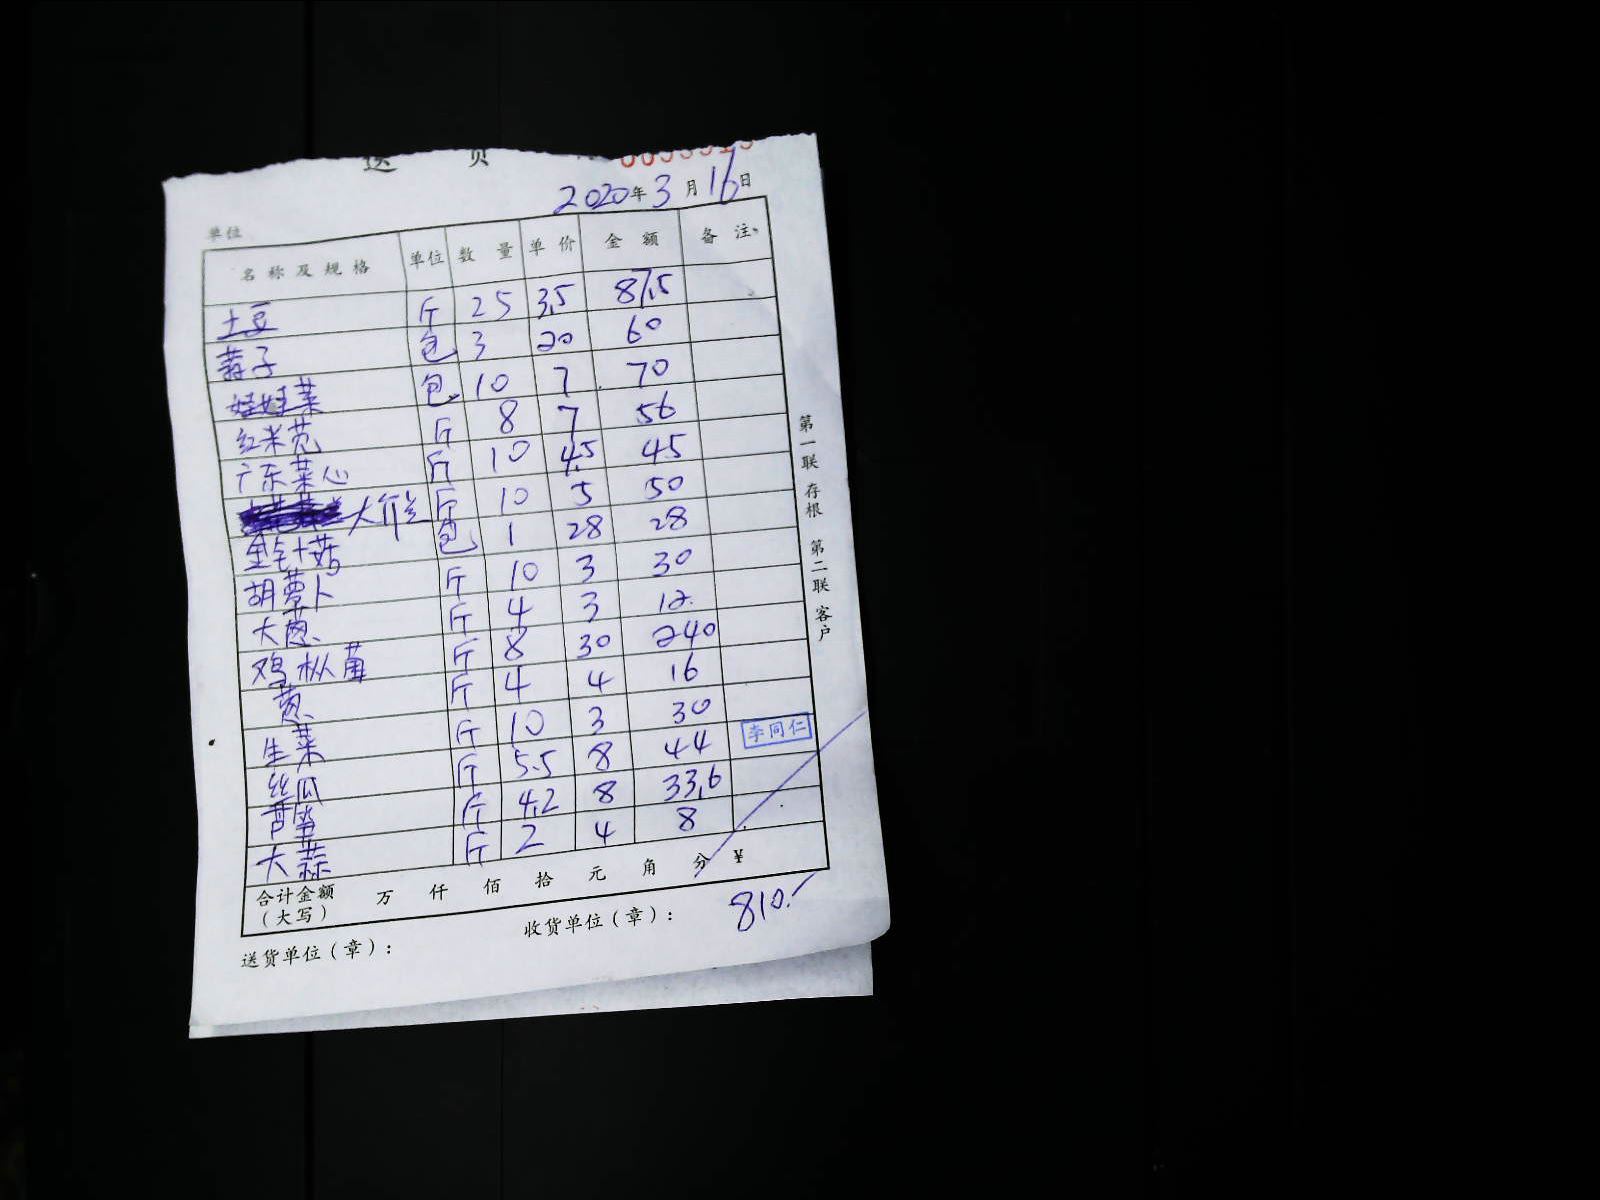 送 货
2020年3月16日
单位
名称及规格 单位 数量 单价 金额 备注
土豆 斤 25 3.5 87.5
蒜子 包 3 20 60
娃娃菜 包 10 7 70
红米苋 斤 8 7 56
广东菜心 斤 10 4.5 45
大介兰 斤 10 5 50
金针菇 包 1 28 28
胡萝卜 斤 10 3 30
大葱 斤 4 3 12
鸡枞菌 斤 8 30 240
葱 斤 4 4 16
生菜 斤 10 3 30
李同仁
丝瓜 斤 5.5 8 44
莴笋 斤 4.2 8 33.6
大蒜 斤 2 4 8
合计金额 万 仟 佰 拾 元 角 分 ¥
（大写）
810.
送货单位（章）： 收货单位（章）：
第一联 存根 第二联 客户